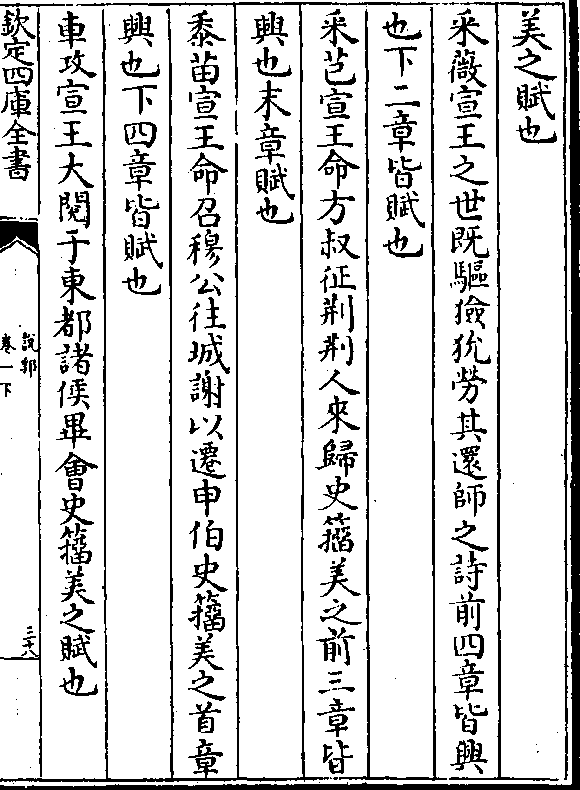 美之賦也
采薇宣王之世既驅獫狁勞其還師之詩前四章皆興
也下二章皆賦也
采芑宣王命方叔征荆荆人來歸史籀美之前三章皆
興也末章賦也
黍苗宣王命召穆公往城謝以遷申伯史籀美之首章
興也下四章皆賦也
車攻宣王大閱于東都諸侯畢會史籀美之賦也
欽定四庫全書
說郛
卷一下
三六